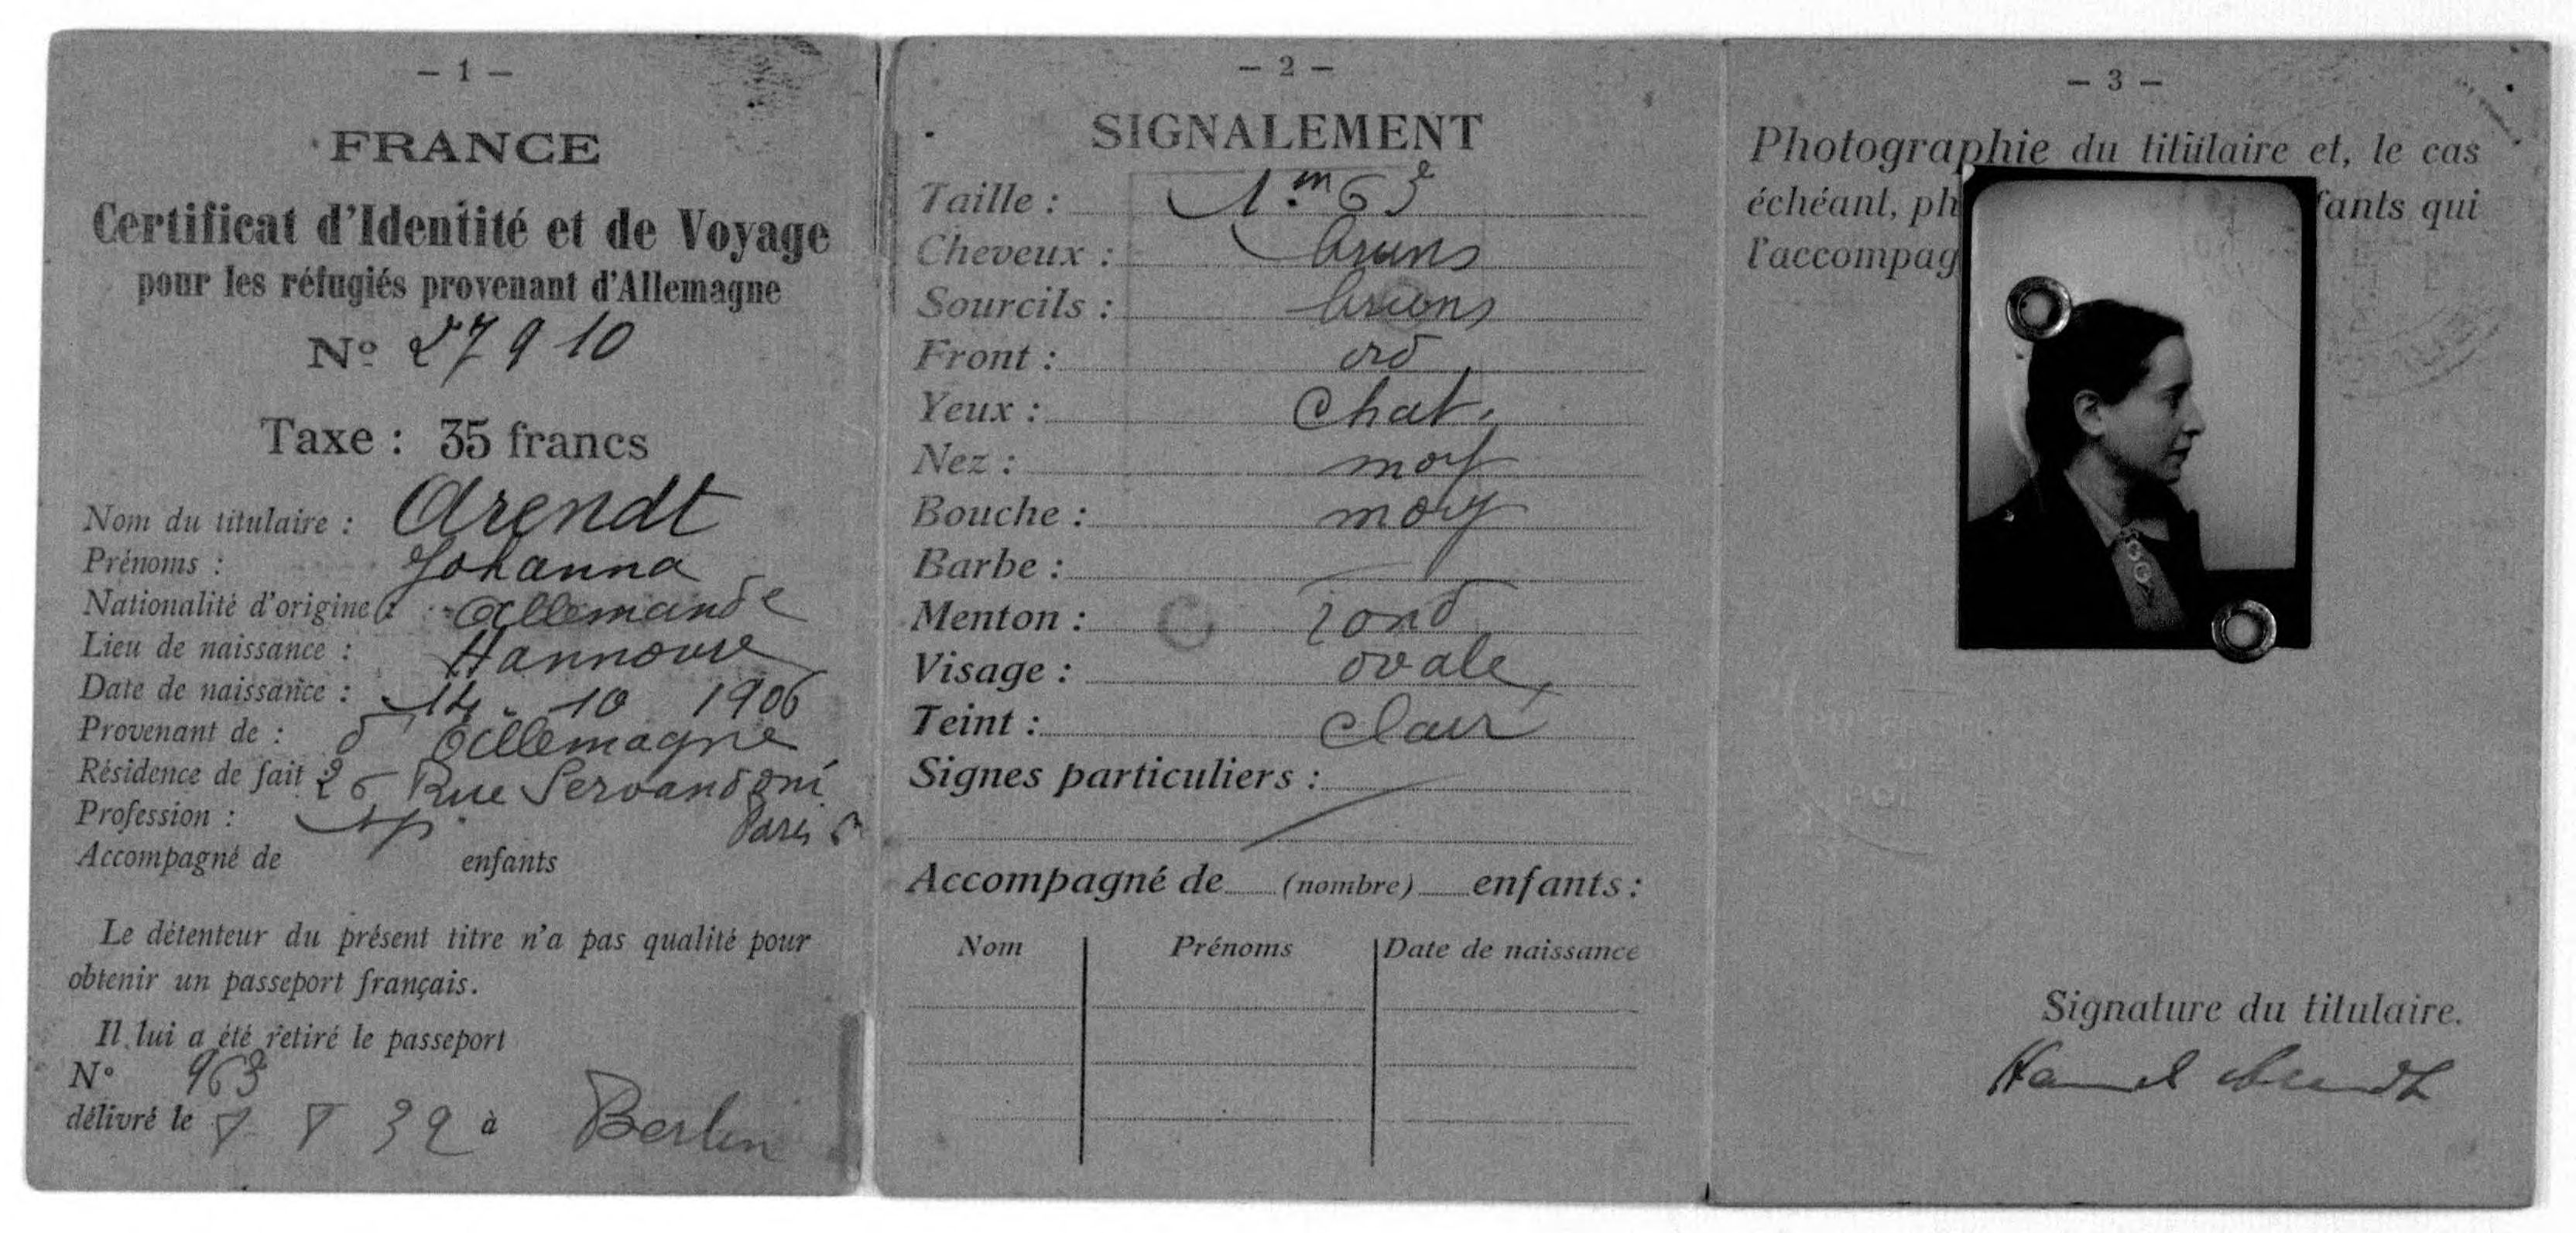 - 1 -
FRANCE
Certificat d'Identité et de Voyage
pour les réfugiés provenant d'Allemagne
Nº 27910
Taxe : 35 francs
Nom du titulaire : Arendt
Prénoms : Johanna
Nationalité d'origine : allemande
Lieu de naissance : Hannovre
Date de naissance : 14. 10 1906
Provenant de : d'Allemagne
Résidence de fait 26 Rue Servandoni
Paris 6
Profession : sp
Accompagné de enfants
Le détenteur du présent titre n'a pas qualité pour
obtenir un passeport français.
Il lui a été retiré le passeport
N° 963
délivré le 8 32 à Berlin
- 2 -
SIGNALEMENT
Taille : 1.m 63
Cheveux : bruns
Sourcils : bruns
Front : ord
Yeux : Chat.
Nez : moy
Bouche : moy
Barbe :
Menton : rond
Visage : ovale
Teint : Clair
Signes particuliers :
Accompagné de (nombre) enfants :
Nom Prénoms Date de naissance
- 3 -
Photographie du titulaire et, le cas
échéant, ph fants qui
l'accompag
Signature du titulaire.
Hannah Arendt